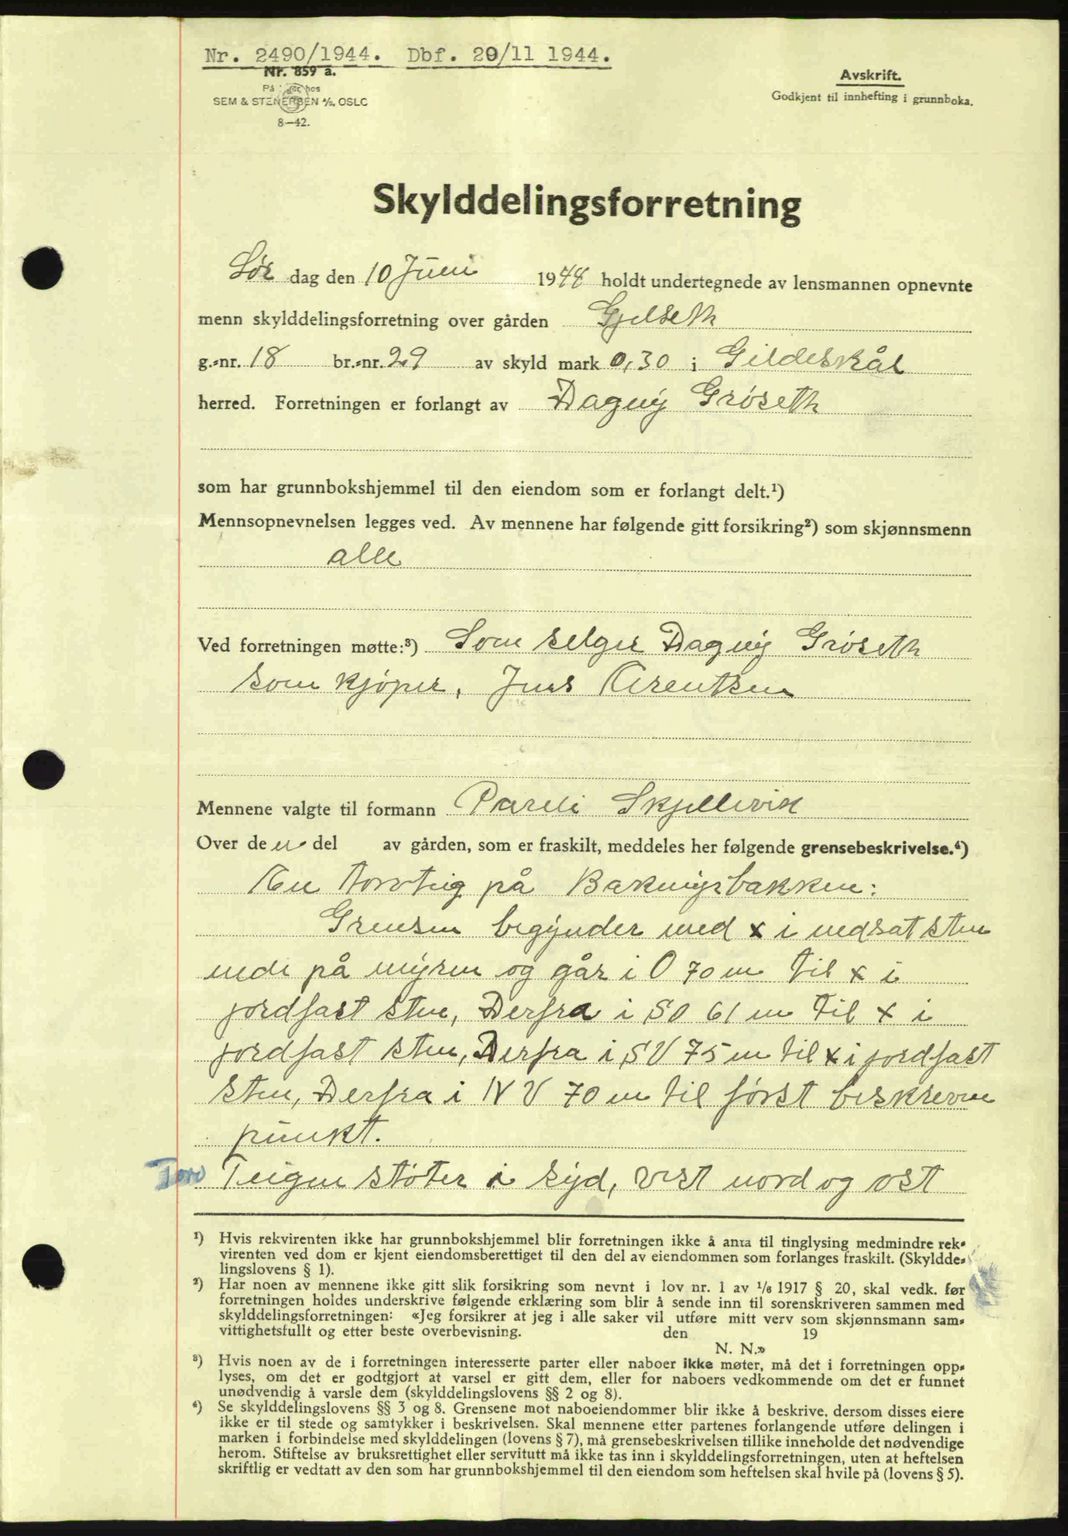 Nr. 2490/1944. Dbf. 20/11 1944.
Nr. 859 a.
SEM & STENERSEN A/S, OSLO
8-42.
Avskrift.
Godkjent til innhefting i grunnboka.
Skylddelingsforretning
Lør dag den 10 Juni 1944 holdt undertegnede av lensmannen opnevnte
menn skylddelingsforretning over gården Gjelseth
g.-nr. 18 br.-nr. 29 av skyld mark 0,30 i Gildeskål
herred. Forretningen er forlangt av Dagny Grøseth
som har grunnbokshjemmel til den eiendom som er forlangt delt.¹)
Mennsopnevnelsen legges ved. Av mennene har følgende gitt forsikring²) som skjønnsmenn
alle
Ved forretningen møtte:³) Som selger Dagny Grøseth
som kjøper, Jens Arentsen
Mennene valgte til formann Pareli Skjellevik
Over de n del av gården, som er fraskilt, meddeles her følgende grensebeskrivelse.⁴)
En torvteig på
Grensen begynder med x i nedsat sten
nede på myren og går i O 70 m til x i
jordfast sten, Derfra i SO 61 m til x i
jordfast sten, Derfra i SV 75 m til x i jordfast
sten, Derfra i NV 70 m til først beskrevne
punkt.
Torv Teigen støter i syd, vest nord og ost
¹) Hvis rekvirenten ikke har grunnbokshjemmel blir forretningen ikke å anta til tinglysing medmindre rek-
virenten ved dom er kjent eiendomsberettiget til den del av eiendommen som forlanges fraskilt. (Skyldde-
lingslovens § 1).
²) Har noen av mennene ikke gitt slik forsikring som nevnt i lov nr. 1 av 1/6 1917 § 20, skal vedk. før
forretningen holdes underskrive følgende erklæring som blir å sende inn til sorenskriveren sammen med
skylddelingsforretningen: «Jeg forsikrer at jeg i alle saker vil utføre mitt verv som skjønnsmann sam-
vittighetsfullt og etter beste overbevisning. den 19
N. N.»
³) Hvis noen av de i forretningen interesserte parter eller naboer ikke møter, må det i forretningen opp-
lyses, om det er godtgjort at varsel er gitt dem, eller for naboers vedkommende om det er funnet
unødvendig å varsle dem (skylddelingslovens §§ 2 og 8).
⁴) Se skylddelingslovens §§ 3 og 8. Grensene mot naboeiendommer blir ikke å beskrive, dersom disses eiere
ikke er til stede og samtykker i beskrivelsen. Skal mennene etter partenes forlangende utføre delingen i
marken i forbindelse med skylddelingen (lovens § 7), må grensebeskrivelsen tillike inneholde det nødvendige
herom. Stiftelse av bruksrettighet eller servitutt må ikke tas inn i skylddelingsforretningen, uten at heftelsen
skriftlig er vedtatt av den som har grunnbokshjemmel til den eiendom som heftelsen skal hvile på (lovens § 5).